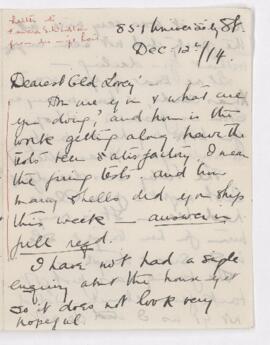 letter to
851 University St.
Dec: 12th/14.
Dearest Old Lovey'
How are you & what are
you doing, and how is the
work getting along have the
tests been satisfactory. I mean
the firing tests, and how
many shells did you ship
this week — answer in
full read.
I have not had a single
enquiry about the house yet
so it does not look very
hopeful